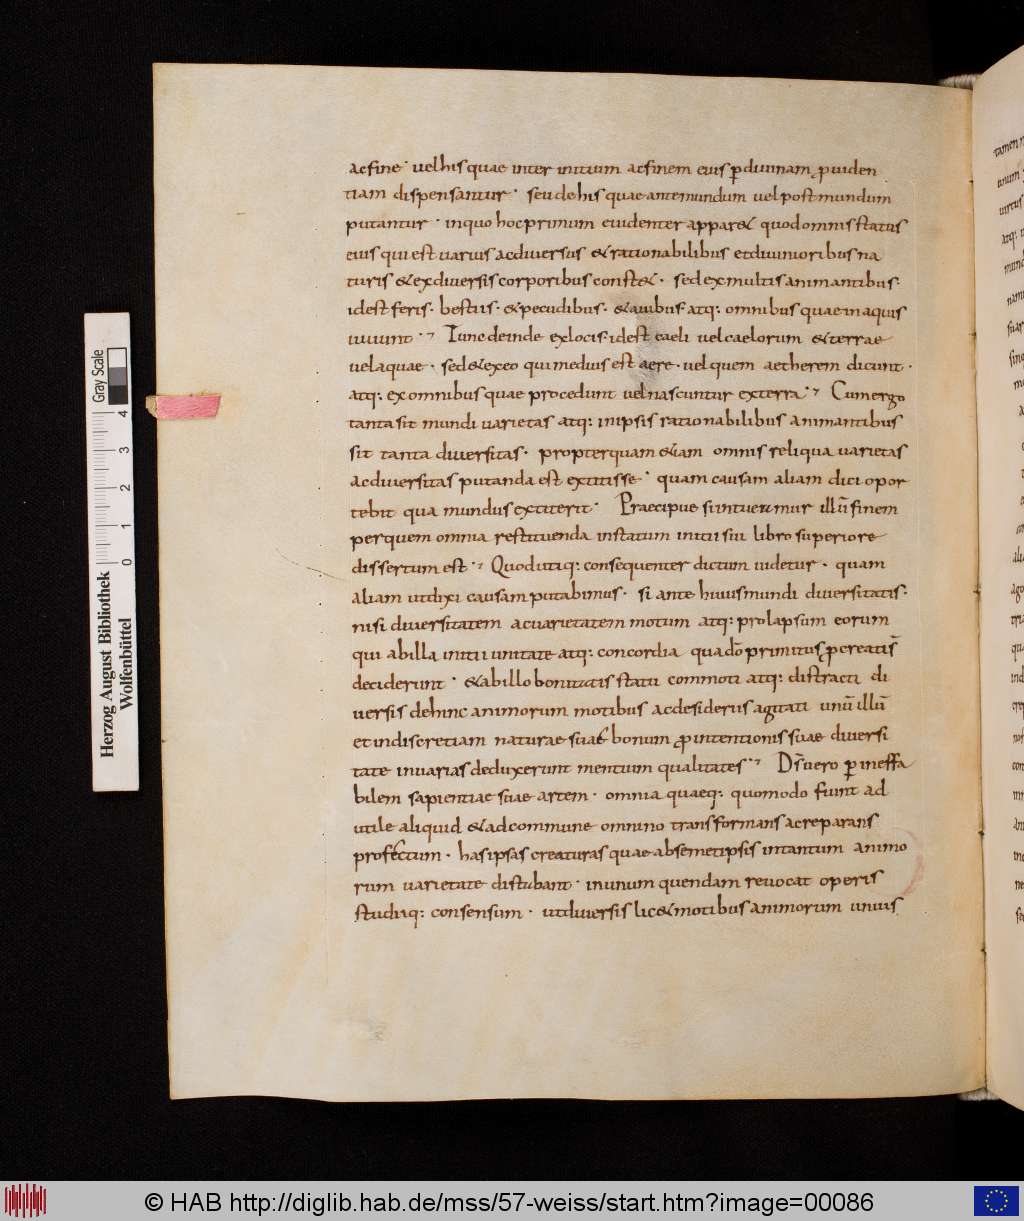 ac fine · vel his quae inter initium ac finem eius ꝑ diuinam ꝓuiden
tiam dispensantur · seu de his quae ante mundum vel post mundum
putantur · in quo hoc primum euidenter appar& quod omnis status
eius qui est uarius ac diuersus & rationabilibus et diuinioribus na
turis & ex diuersis corporibus const& · sed ex multis animantibus ·
idest feris · bestiis · & pecudibus · & auibus atq: omnibus quae in aquis
uiuunt · Tunc deinde ex locis · idest caeli vel caelorum & terrae
vel aquae · sed & ex eo qui medius est aere · vel quem aetherem dicunt ·
atq: ex omnibus quae procedunt vel nascuntur ex terra · Cum ergo
tanta sit mundi uarietas atq: in ipsis rationabilibus animantibus
sit tanta diuersitas · propter quam &iam omnis reliqua uarietas
ac diuersitas putanda est extitisse · quam causam aliam dici opor
tebit qua mundus extiterit · Praecipue si intueamur illū finem
per quem omnia restituenda in statum initii sui libro superiore
dissertum est · Quod utiq: consequenter dictum uidetur · quam
aliam ut dixi causam putabimus · si ante huius mundi diuersitatis ·
nisi diuersitatem ac uarietatem motum atq: prolapsum eorum
qui ab illa initii unitate atq: concordia qua a dō primitus ꝓcreati s̄
deciderunt · & ab illo bonitatis statu commoti atq: distracti di
uersis dehinc animorum motibus ac desideriis agitati unū illū
et indiscretiam naturae suae bonum ꝓ intentionis suae diuersi
tate in uarias deduxerunt mentium qualitates · Ds̄ uero ꝑ ineffa
bilem sapientiae suae artem · omnia quaeq: quomodo fiunt ad
utile aliquid & ad commune omnino transformans ac reparans
profectum · has ipsas creaturas quae a bsemetipsis in tantum animo
rum uarietate distabant · in unum quendam reuocat operis
studiiq: consensum · ut diuersis lic& motibus animorum unius
Gray Scale
4
3
2
1
0
Herzog August Bibliothek
Wolfenbüttel
© HAB http://diglib.hab.de/mss/57-weiss/start.htm?image=00086